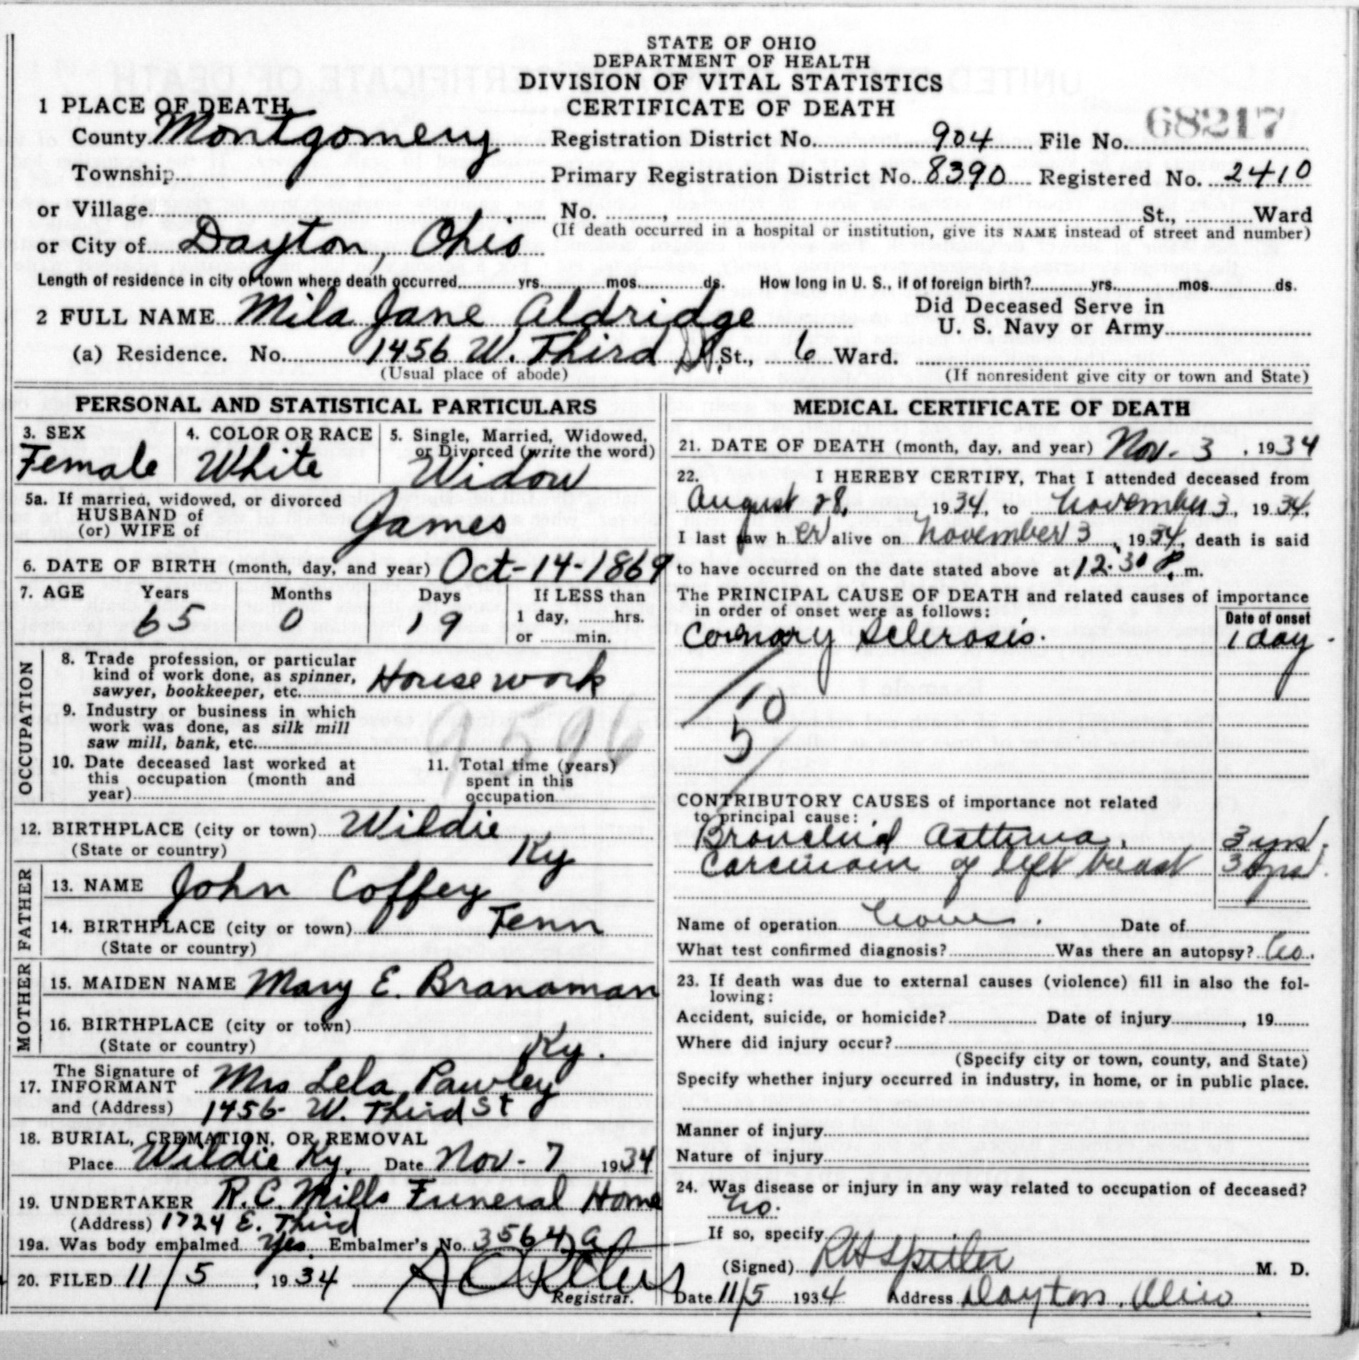 STATE OF OHIO
DEPARTMENT OF HEALTH
DIVISION OF VITAL STATISTICS
CERTIFICATE OF DEATH
1 PLACE OF DEATH
County Montgomery Registration District No. 904 File No. 68217
Township Primary Registration District No. 8390 Registered No. 2410
or Village No. , St., Ward
or City of Dayton, Ohio (If death occurred in a hospital or institution, give its NAME instead of street and number)
Length of residence in city or town where death occurred yrs. mos. ds. How long in U. S., if of foreign birth? yrs. mos. ds.
2 FULL NAME Mila Jane Aldridge Did Deceased Serve in
U. S. Navy or Army
(a) Residence. No. 1456 W. Third St., 6 Ward.
(Usual place of abode) (If nonresident give city or town and State)
PERSONAL AND STATISTICAL PARTICULARS
3. SEX 4. COLOR OR RACE 5. Single, Married, Widowed,
or Divorced (write the word)
Female White Widow
5a. If married, widowed, or divorced
HUSBAND of
(or) WIFE of James
6. DATE OF BIRTH (month, day, and year) Oct-14-1869
7. AGE Years Months Days If LESS than
1 day, hrs.
or min.
65 0 19
OCCUPATION
8. Trade profession, or particular
kind of work done, as spinner,
sawyer, bookkeeper, etc. House work
9. Industry or business in which
work was done, as silk mill
saw mill, bank, etc.
9596
10. Date deceased last worked at
this occupation (month and
year)
11. Total time (years)
spent in this
occupation
12. BIRTHPLACE (city or town) Wildie
(State or country) Ky
FATHER
13. NAME John Coffey
14. BIRTHPLACE (city or town) Tenn
(State or country)
MOTHER
15. MAIDEN NAME Mary E. Branaman
16. BIRTHPLACE (city or town)
(State or country) Ky.
17. The Signature of
INFORMANT Mrs Lela Pawley
and (Address) 1456- W. Third St
18. BURIAL, CREMATION, OR REMOVAL
Place Wildie Ky. Date Nov-7 1934
19. UNDERTAKER R.C. Mills Funeral Home
(Address) 1724 E. Third
19a. Was body embalmed Yes. Embalmer's No. 3564a
20. FILED 11/5, 1934
Registrar.
MEDICAL CERTIFICATE OF DEATH
21. DATE OF DEATH (month, day, and year) Nov. 3, 1934
22. I HEREBY CERTIFY, That I attended deceased from
August 28, 1934, to November 3, 1934,
I last saw h er alive on November 3, 1934, death is said
to have occurred on the date stated above at 12:30 P. m.
The PRINCIPAL CAUSE OF DEATH and related causes of importance
in order of onset were as follows: Date of onset
Coronary Sclerosis. 1 day
10
5
CONTRIBUTORY CAUSES of importance not related
to principal cause:
Bronchial Asthma. 3 yrs.
Carcinoma of left breast 3 yrs.
Name of operation none. Date of
What test confirmed diagnosis? Was there an autopsy? No.
23. If death was due to external causes (violence) fill in also the fol-
lowing:
Accident, suicide, or homicide? Date of injury , 19
Where did injury occur?
(Specify city or town, county, and State)
Specify whether injury occurred in industry, in home, or in public place.
Manner of injury
Nature of injury
24. Was disease or injury in any way related to occupation of deceased?
No.
If so, specify
(Signed) M. D.
Date 11/5 1934 Address Dayton, Ohio